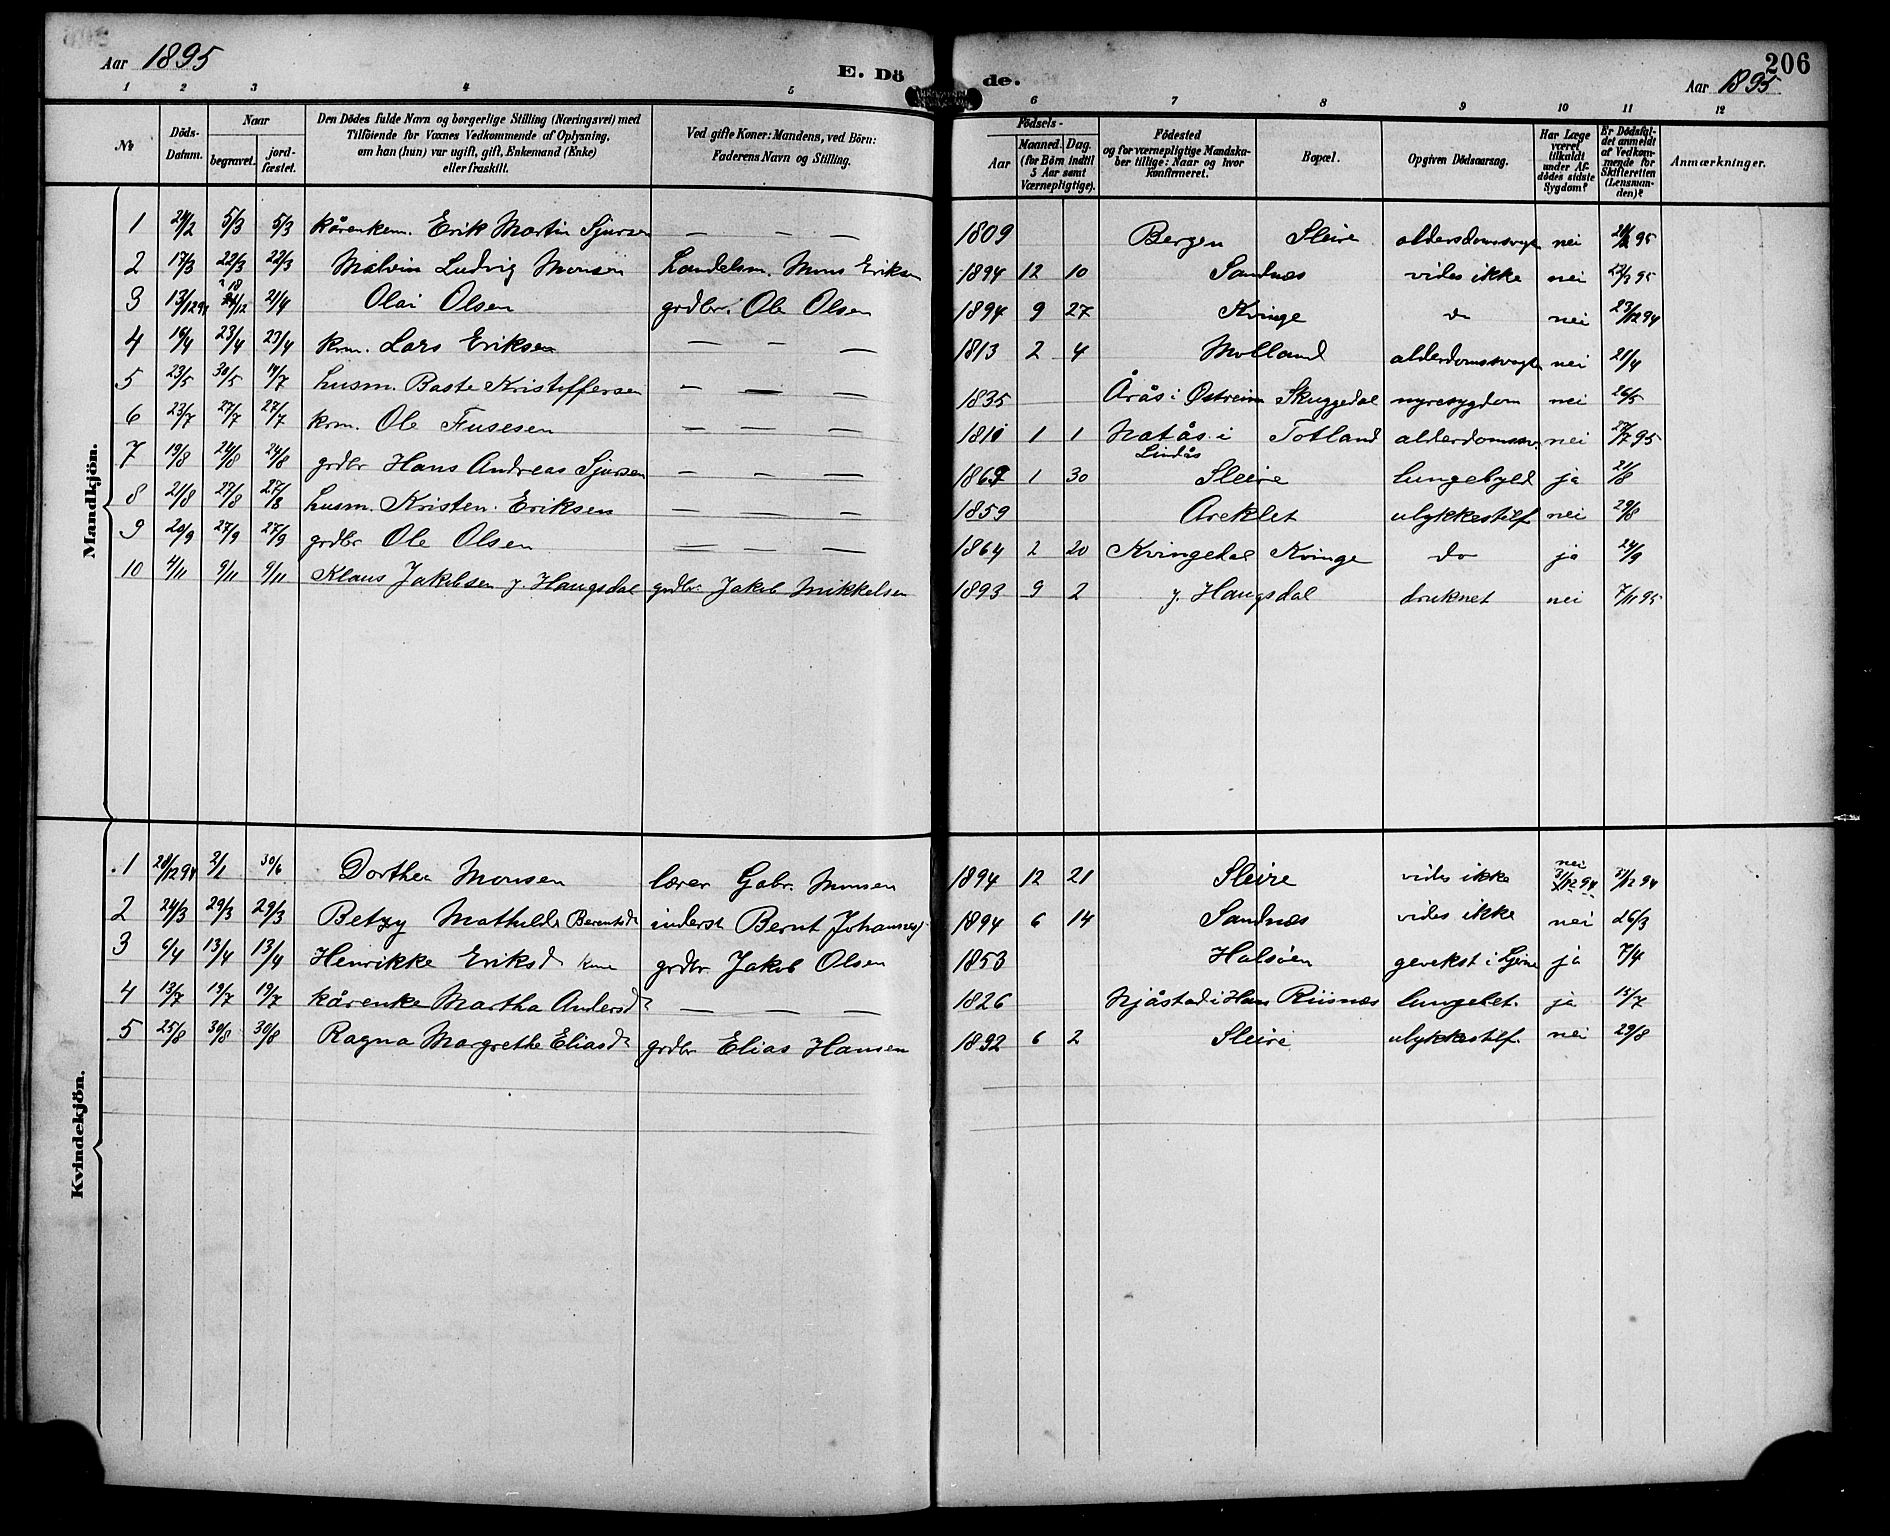 Aar 1895
E. Dö
de.
206
Aar 1895
1 2 3 4 5 6 7 8 9 10 11 12
№
Döds-Datum.
Naar
begravet.
jord-fæstet.
Den Dödes fulde Navn og borgerlige Stilling (Næringsvei) med
Tilföiende for Voxnes Vedkommende af Oplysning,
om han (hun) var ugift, gift, Enkemand (Enke)
eller fraskilt.
Ved gifte Koner: Mandens, ved Börn:
Faderens Navn og Stilling.
Födsels-
Aar
Maaned. Dag.
(for Börn indtil
5 Aar samt
Værnepligtige).
Födested
og for værnepligtige Mandska-
ber tillige: Naar og hvor
Konfirmeret.
Bopæl.
Opgiven Dödsaarsag.
Har Læge
været
tilkaldt
under Af-
dödes sidste
Sygdom?
Er Dödsfal-
det anmeldt
af Vedkom-
mende for
Skifteretten
(Lensman-
den)?
Anmærkninger.
Mandkjön.
1 24/2 5/3 5/3 kårenkem. Erik Martin Sjursen — — — 1809 Bergen Sleire aldersdomssvagh nei 95
2 17/3 22/3 22/3 Malvin Ludvig Monsen Landelsm. Mons Eriksen 1894 12 10 Sandnæs vides ikke nei 22/3 95
3 13/12 94 21/4 Olai Olsen grdbr. Ole Olsen 1894 9 27 Kvinge do nei 23/12 94
4 16/4 23/4 23/4 krm. Lars Eriksen — — — 1813 2 4 Molland alderdomssvagh nei 21/4
5 23/5 30/5 14/7 husm. Baste Kristoffersen — — — 1835 Årås i Østreim Skuggedal nyresygdom nei 26/5
6 23/7 27/7 27/7 krm. Ole Fusesen — — — 1811 1 1 Natås i Lindås Totland alderdomssv. nei 27/7 95
7 19/8 24/8 24/8 grdbr Hans Andreas Sjursen — — — 1867 1 30 Sleire lungebyld ja 21/8
8 21/8 27/8 27/8 husm. Kristen Eriksen — — — 1859 Areklet ulykkestilf nei 29/8
9 20/9 27/9 27/9 grdbr Ole Olsen — — — 1864 2 20 Kvingedal Kvinge do ja 24/9
10 4/11 9/11 9/11 Klaus Jakobsen y. Haugsdal grdbr. Jakob Mikkelsen 1893 9 2 y. Haugsdal druknet nei 7/11 95
Kvindekjön.
1 28/12 94 2/1 30/6 Dorthea Monsen lærer Gabr. Monsen 1894 12 21 Sleire vides ikke nei 31/12 94 31/12 94
2 24/3 29/3 29/3 Betzy Mathilde Berentsdt inderst Bernt Johannes 1894 6 14 Sandnæs vides ikke nei 26/3
3 6/4 13/4 13/4 Henrikke Eriksd Kone grdbr. Jakob Olsen 1853 Halsøen gevekst i ja 7/4
4 13/7 19/7 19/7 kårenke Martha Andersdt — — — 1826 Njåstad i Hans Riisnæs lungebet. ja 15/7
5 25/8 30/8 30/8 Ragna Margrethe Eliasdt grdbr Elias Hansen 1892 6 2 Sleire ulykkestilf. nei 29/8